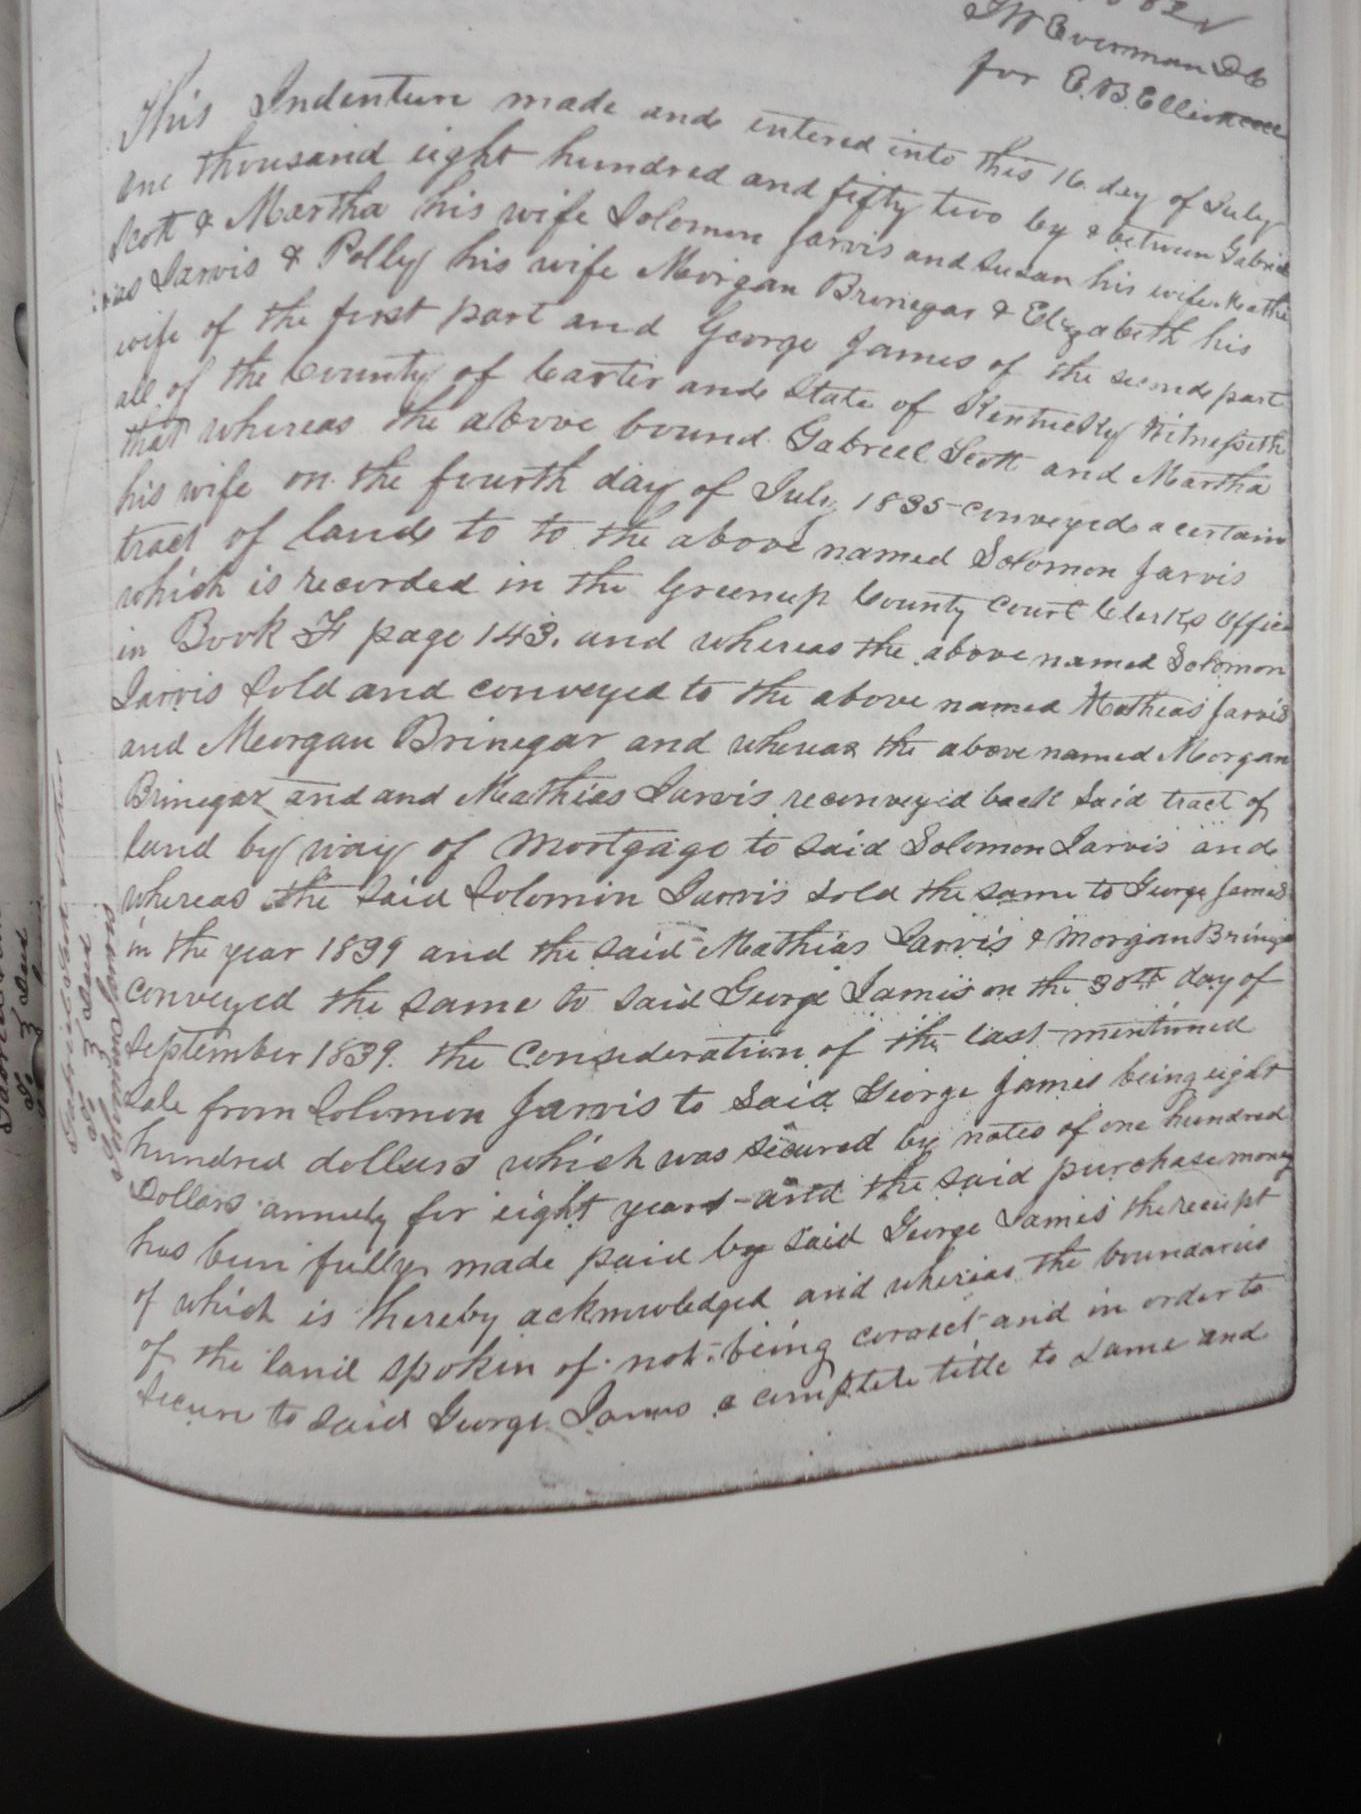 J W Everman DC
for E. B. Elliott
This Indenture made and entered into this 16 day of July
one thousand eight hundred and fifty two by & between Gabriel
Scott & Martha his wife Solomon Jarvis and Susan his wife Mathi
as Jarvis & Polly his wife Morgan Brinegar & Elizabeth his
wife of the first part and George James of the second part
all of the County of Carter and State of Kentucky Witnesseth
that whereas the above bound Gabriel Scott and Martha
his wife on the fourth day of July 1835 conveyed a certain
tract of land to to the above named Solomon Jarvis
which is recorded in the Greenup County Court Clerks Office
in Book F page 143. and whereas the above named Solomon
Jarvis Sold and conveyed to the above named Mathias Jarvis
and Morgan Brinegar and whereas the above named Morgan
Brinegar and and Mathias Jarvis reconveyed back Said tract of
land by way of Mortgage to said Solomon Jarvis and
whereas the Said Solomon Jarvis Sold the same to George James
in the year 1839 and the Said Mathias Jarvis & Morgan Brinegar
conveyed the same to said George James on the 30th day of
September 1839. the Consideration of the last mentioned
Sale from Solomon Jarvis to Said George James being eight
hundred dollars which was secured by notes of one hundred
Dollars annuly for eight years and the said purchase money
has been fully made paid by Said George James the receipt
of which is hereby acknowledged and whereas the boundaries
of the land spoken of not being correct and in order to
Secure to Said George James a complete title to same and